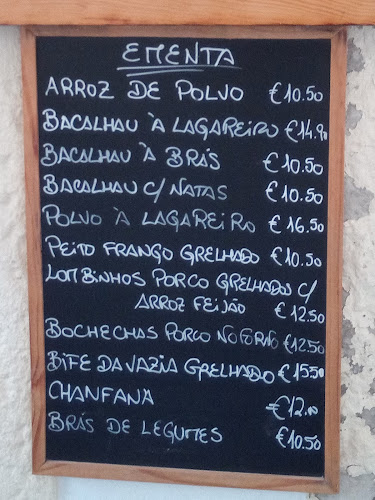 EMENTA
ARROZ DE POLVO €10.50
BACALHAU À LAGAREIRO €14.90
BACALHAU À BRÁS €10.50
BACALHAU C/ NATAS €10.50
POLVO À LAGAREIRO €16.50
PEITO FRANGO GRELHADO €10.50
LOMBINHOS PORCO GRELHADOS C/
ARROZ FEIJÃO €12.50
BOCHECHAS PORCO NO FORNO €12.50
BIFE DA VAZIA GRELHADO €15.50
CHANFANA €12.00
BRÁS DE LEGUMES €10.50